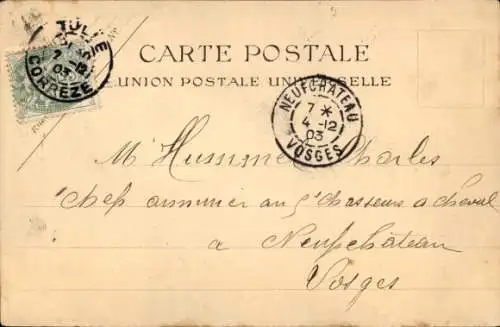 TULLE
CORRÈZE
CARTE POSTALE
UNION POSTALE UNIVERSELLE
NEUFCHATEAU
7 *
4 -12
03
VOSGES
Mr Hummel Charles
chef armurier au chasseurs a cheval
a Neufchâteau
Vosges